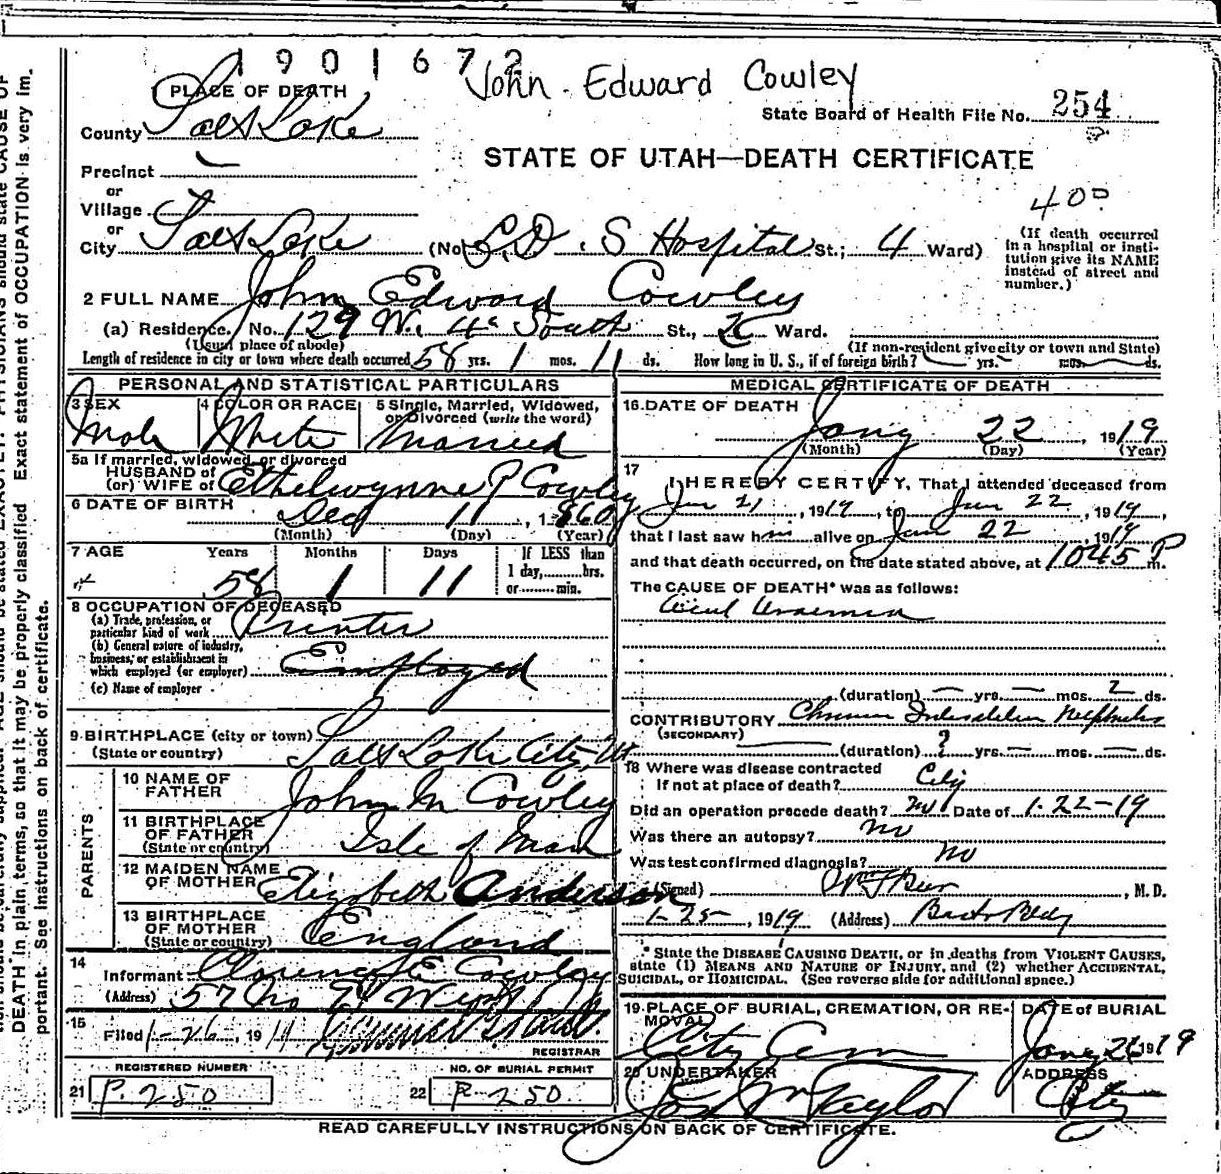 1901672
John Edward Cowley
PLACE OF DEATH
County Salt Lake
State Board of Health File No. 254
STATE OF UTAH—DEATH CERTIFICATE
Precinct
or
Village
or
City Salt Lake (No. L.D.S Hospital St.; 4 Ward)
400
(If death occurred
in a hospital or insti-
tution give its NAME
instead of street and
number.)
2 FULL NAME John Edward Cowley
(a) Residence. No. 129 W. 4 South St., Ward.
(Usual place of abode)
(If non-resident give city or town and State)
Length of residence in city or town where death occurred 58 yrs. 1 mos. 11 ds. How long in U. S., if of foreign birth? yrs. mos. ds.
PERSONAL AND STATISTICAL PARTICULARS
3 SEX
Male
4 COLOR OR RACE
White
5 Single, Married, Widowed,
or Divorced (write the word)
Married
5a If married, widowed or divorced
HUSBAND of
(or) WIFE of Ethelwynne P Cowley
6 DATE OF BIRTH
Dec 11, 1860
(Month) (Day) (Year)
7 AGE Years Months Days
58 1 11
If LESS than
1 day, hrs.
or min.
8 OCCUPATION OF DECEASED
(a) Trade, profession, or
particular kind of work Printer
(b) General nature of industry,
business, or establishment in
which employed (or employer) Employed
(c) Name of employer
9 BIRTHPLACE (city or town)
(State or country) Salt Lake City, Ut
PARENTS
10 NAME OF
FATHER John M Cowley
11 BIRTHPLACE
OF FATHER
(State or country) Isle of Man
12 MAIDEN NAME
OF MOTHER Elizabeth Anderson
13 BIRTHPLACE
OF MOTHER
(State or country) England
14
Informant Clarence E Cowley
(Address) 57 No
15
Filed 1-26, 1919
REGISTRAR
REGISTERED NUMBER
21 P. 250
NO. OF BURIAL PERMIT
22 P. 250
MEDICAL CERTIFICATE OF DEATH
16. DATE OF DEATH
Jany 22, 1919
(Month) (Day) (Year)
17
I HEREBY CERTIFY, That I attended deceased from
Jan 21, 1919, to Jan 22, 1919,
that I last saw him alive on Jan 22 1919
and that death occurred, on the date stated above, at 1045 P m.
The CAUSE OF DEATH* was as follows:
(duration) yrs. mos. 2 ds.
CONTRIBUTORY Nephritis
(SECONDARY)
(duration) ? yrs. mos. ds.
18 Where was disease contracted
if not at place of death? City
Did an operation precede death? no Date of 1-22-19
Was there an autopsy? no
Was test confirmed diagnosis? no
(Signed) , M. D.
1-25-, 1919 (Address)
* State the DISEASE CAUSING DEATH, or in deaths from VIOLENT CAUSES,
state (1) MEANS AND NATURE OF INJURY, and (2) whether ACCIDENTAL,
SUICIDAL, or HOMICIDAL. (See reverse side for additional space.)
19 PLACE OF BURIAL, CREMATION, OR RE-
MOVAL
City Cem
DATE of BURIAL
Jany 26 1919
20 UNDERTAKER
Jos Wm Taylor
ADDRESS
City
READ CAREFULLY INSTRUCTIONS ON BACK OF CERTIFICATE.
DEATH in plain terms, so that it may be properly classified Exact statement of OCCUPATION is very im-
portant. See instructions on back of certificate.